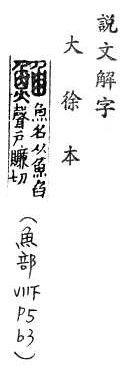 說文解字
大徐本
䱤 魚名从魚臽
聲戶賺切
（魚部 VIII下 P5 b3）